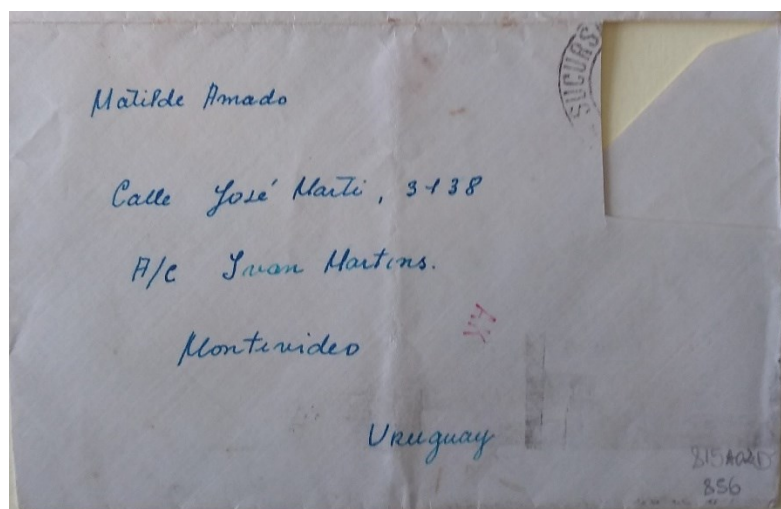 SUCURS
Matilde Amado
Calle José Marti, 3138
A/C Ivan Martins.
Montevideo
Uruguay
815A02D
856